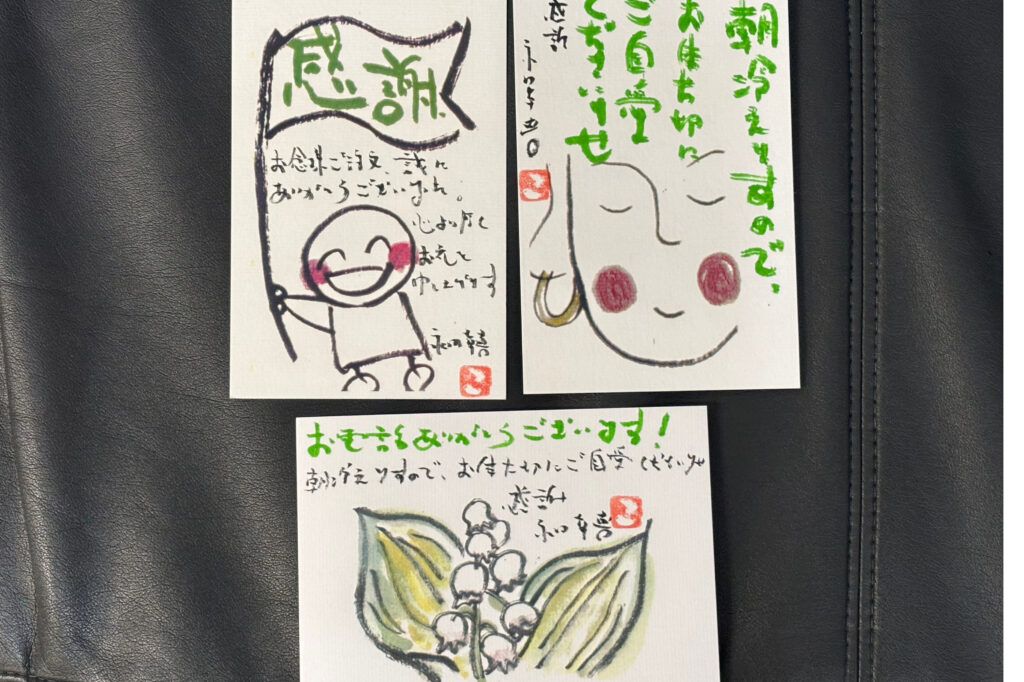 感謝
お念珠ご注文、誠に
ありがとうございます。
心より厚く
お礼を
申し上げます
和幸喜
朝冷えますので、
お身大切に
ご自愛
くださいませ
感謝
お電話ありがとうございます!
朝冷えますので、お身大切にご自愛くださいませ
感謝
和幸喜